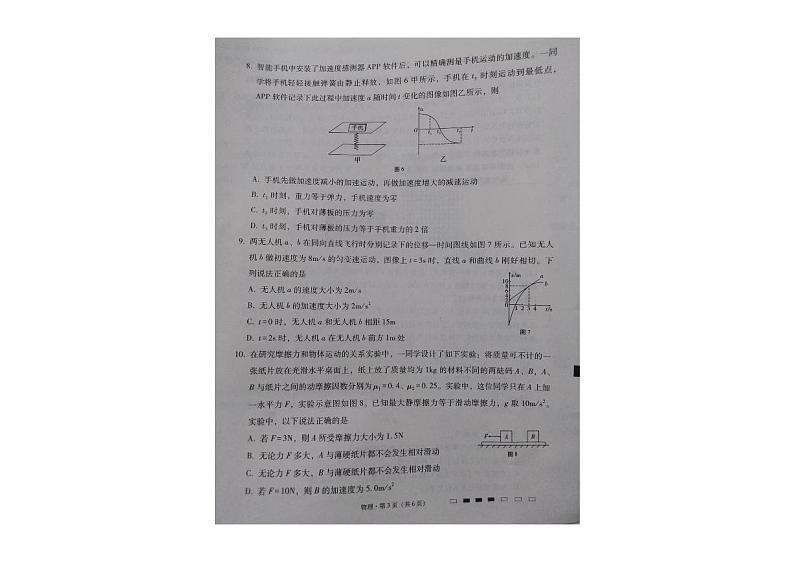 8. 智能手机中安装了加速度感测器 APP 软件后，可以精确测量手机运动的加速度。一同
学将手机轻轻接触弹簧由静止释放，如图 6 甲所示，手机在 t₃ 时刻运动到最低点，
APP 软件记录下此过程中加速度 a 随时间 t 变化的图像如图乙所示，则
手机
甲
a
O
t
乙
图 6
A. 手机先做加速度减小的加速运动，再做加速度增大的减速运动
B. t₁ 时刻，重力等于弹力，手机速度为零
C. t₂ 时刻，手机对薄板的压力为零
D. t₃ 时刻，手机对薄板的压力等于手机重力的 2 倍
9. 两无人机 a、b 在同向直线飞行时分别记录下的位移—时间图线如图 7 所示。已知无人
机 b 做初速度为 8m/s 的匀变速运动，图像上 t=3s 时，直线 a 和曲线 b 刚好相切。下
列说法正确的是
A. 无人机 a 的速度大小为 2m/s
B. 无人机 b 的加速度大小为 2m/s²
C. t=0 时，无人机 a 和无人机 b 相距 15m
D. t=2s 时，无人机 a 在无人机 b 前方 1m 处
x/m
10
8
6
4
2
0
1 2 3 4
t/s
a
b
图 7
10. 在研究摩擦力和物体运动的关系实验中，一同学设计了如下实验：将质量可不计的一
张纸片放在光滑水平桌面上，纸上放了质量均为 1kg 的材料不同的两砝码 A、B，A、
B 与纸片之间的动摩擦因数分别为 μ₁=0.4、μ₂=0.25。实验中，这位同学只在 A 上加
一水平力 F，实验示意图如图 8。已知最大静摩擦力等于滑动摩擦力，g 取 10m/s²。
实验中，以下说法正确的是
A. 若 F=3N，则 A 所受摩擦力大小为 1.5N
B. 无论力 F 多大，A 与薄硬纸片都不会发生相对滑动
C. 无论力 F 多大，B 与薄硬纸片都不会发生相对滑动
D. 若 F=10N，则 B 的加速度为 5.0m/s²
F
A
B
图 8
物理·第 3 页（共 6 页）